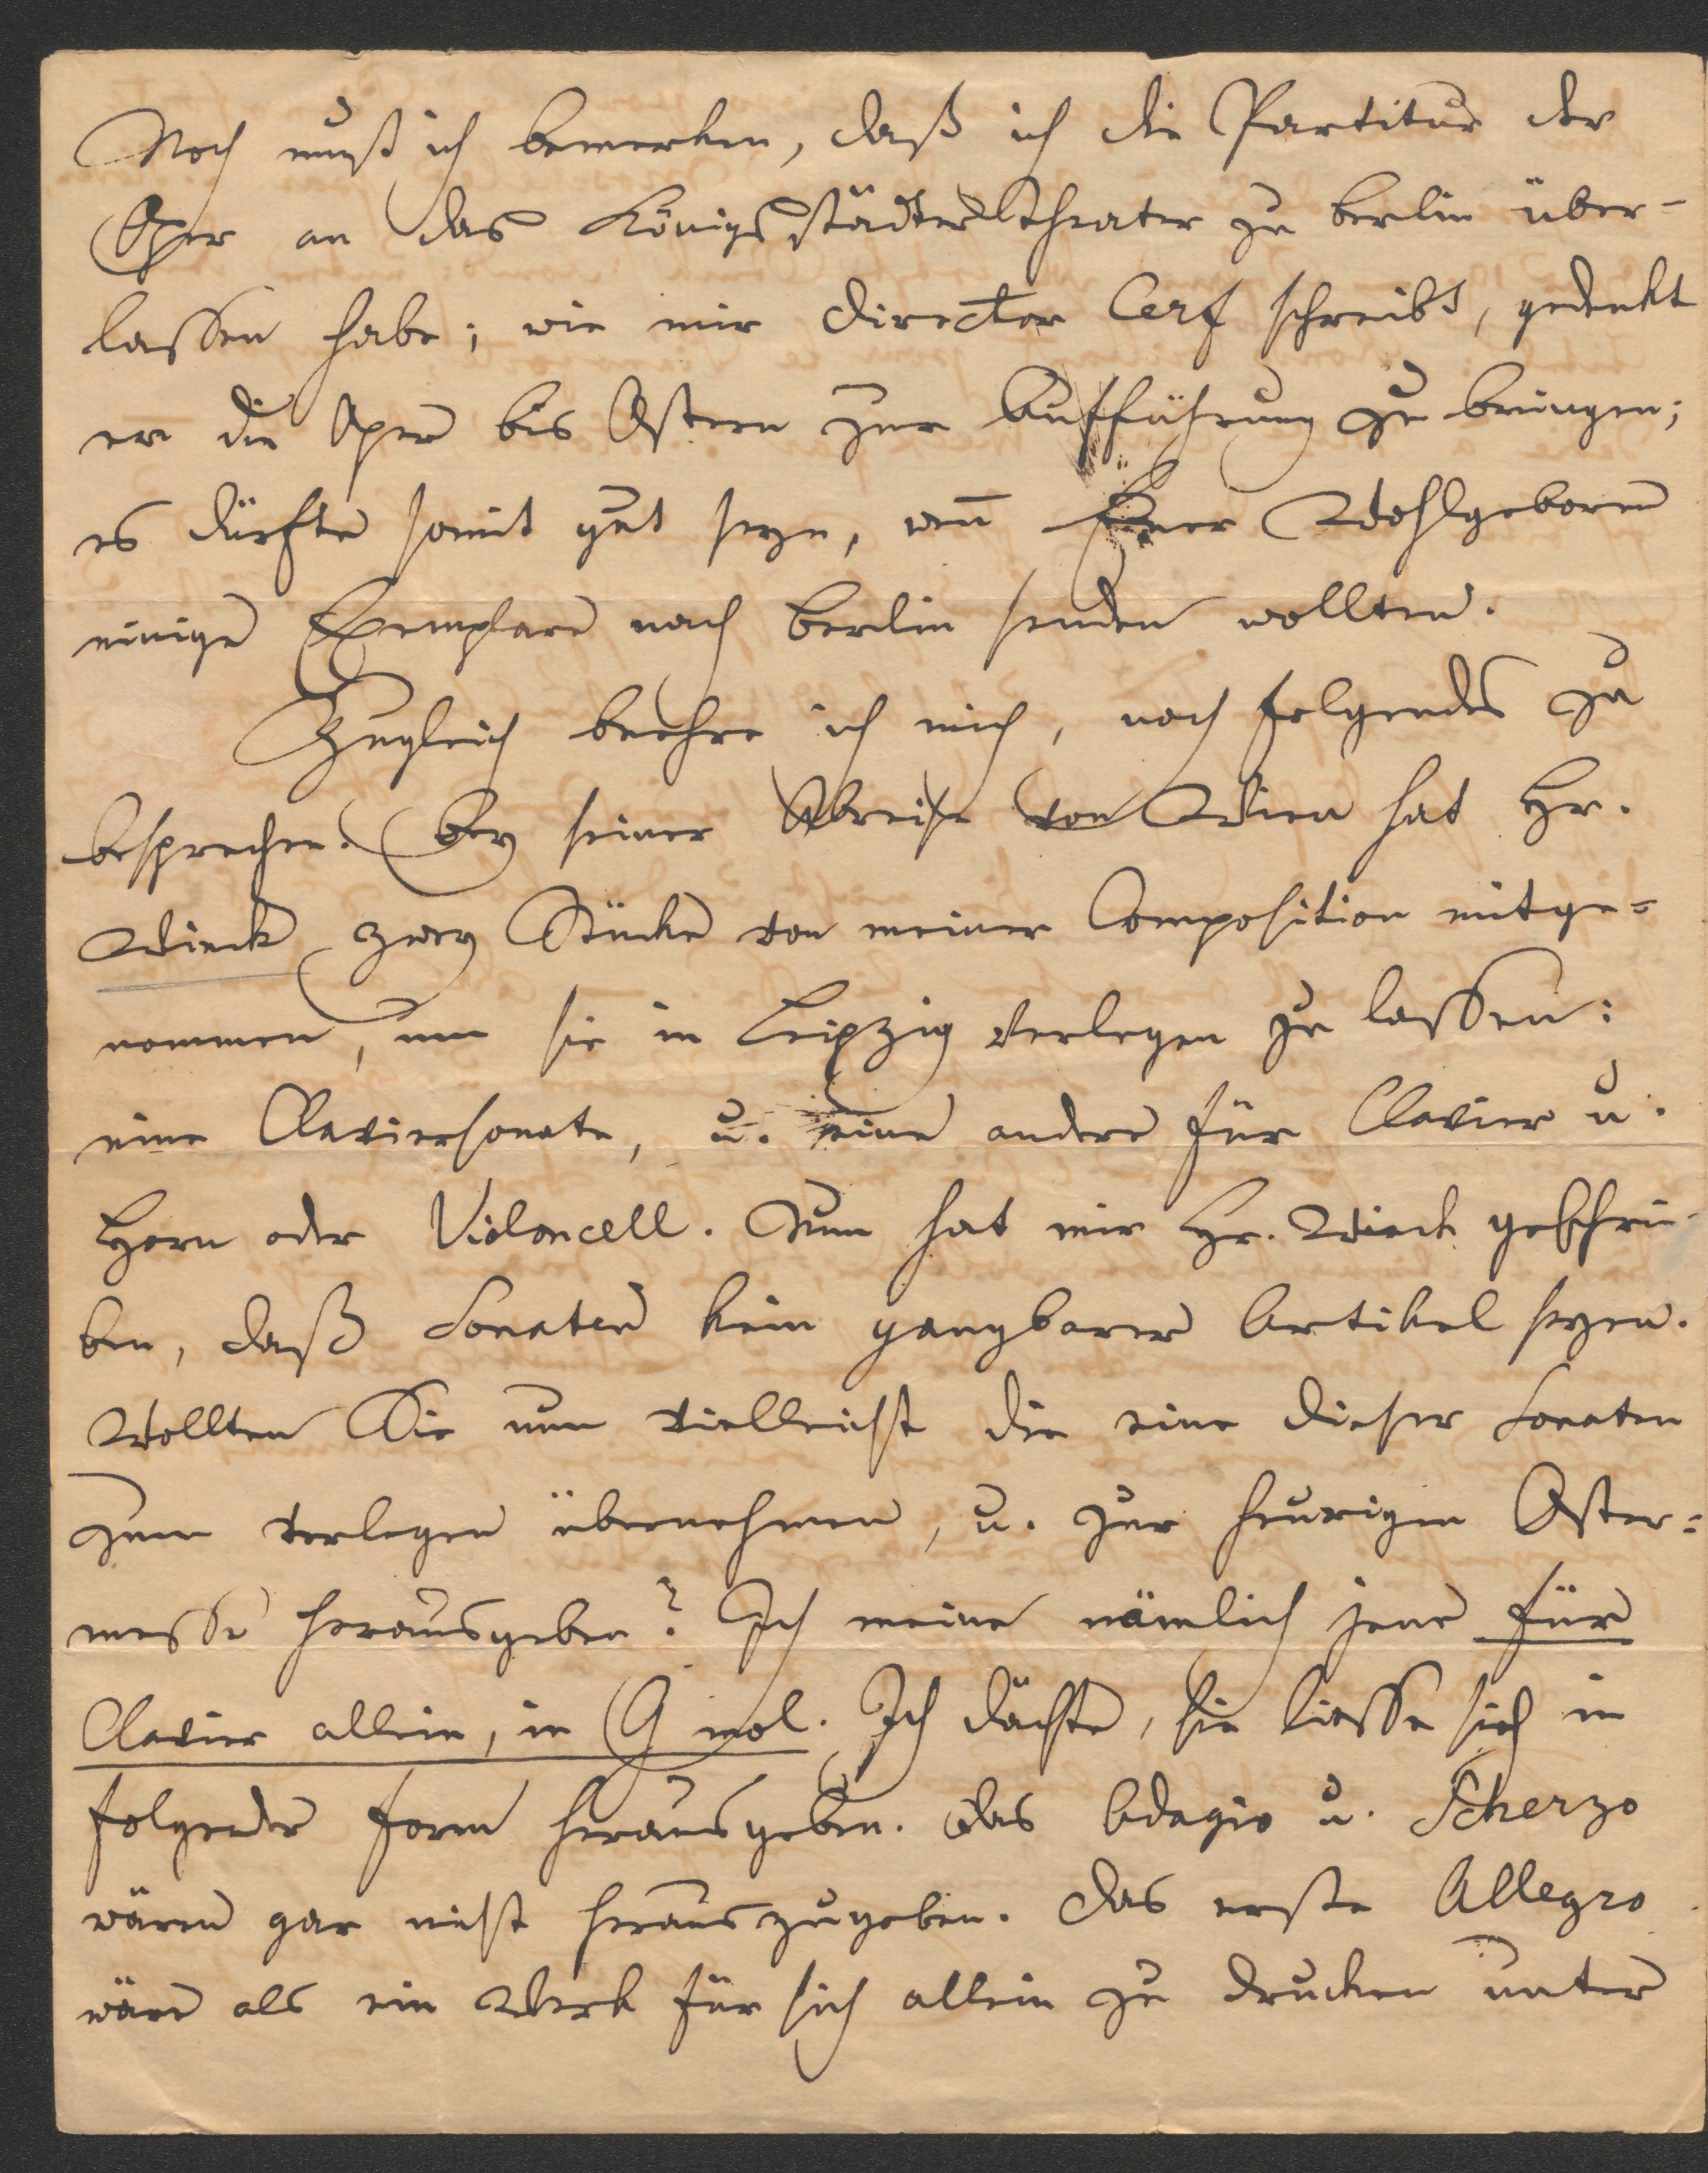 Noch muß ich bemerken, daß ich die Partitur der
Oper an das Königsstädter Theater zu Berlin über-
lassen habe; wie mir Director Cerf schreibt, gedenkt
er die Oper bis Ostern zur Aufführung zu bringen;
es dürfte somit gut seyn, weñ Euer Wohlgeboren
einige Exemplare nach Berlin senden wollten.
Zugleich beehre ich mich, noch folgendes zu
besprechen. Bey seiner Abreise von Wien hat Hr.
Wieck zwey Stücke von meiner Composition mitge-
nommen, um sie in Leipzig verlegen zu lassen:
eine Claviersonate, u. eine andere für Clavier u.
Horn oder Violoncell. Nun hat mir Hr. Wieck geschrie-
ben, daß Sonaten kein gangbarer Artikel seyen.
Wollten Sie nun vielleicht die eine dieser Sonaten
zum verlegen übernehmen, u. zur heurigen Oster-
messe herausgeben? Ich meine nämlich jene für
Clavier allein, in G mol. Ich dächte, sie liesse sich in
folgender Form herausgeben. Das Adagio u. Scherzo
wären gar nicht herauszugeben. Das erste Allegro
wäre als ein Werk für sich allein zu drucken unter